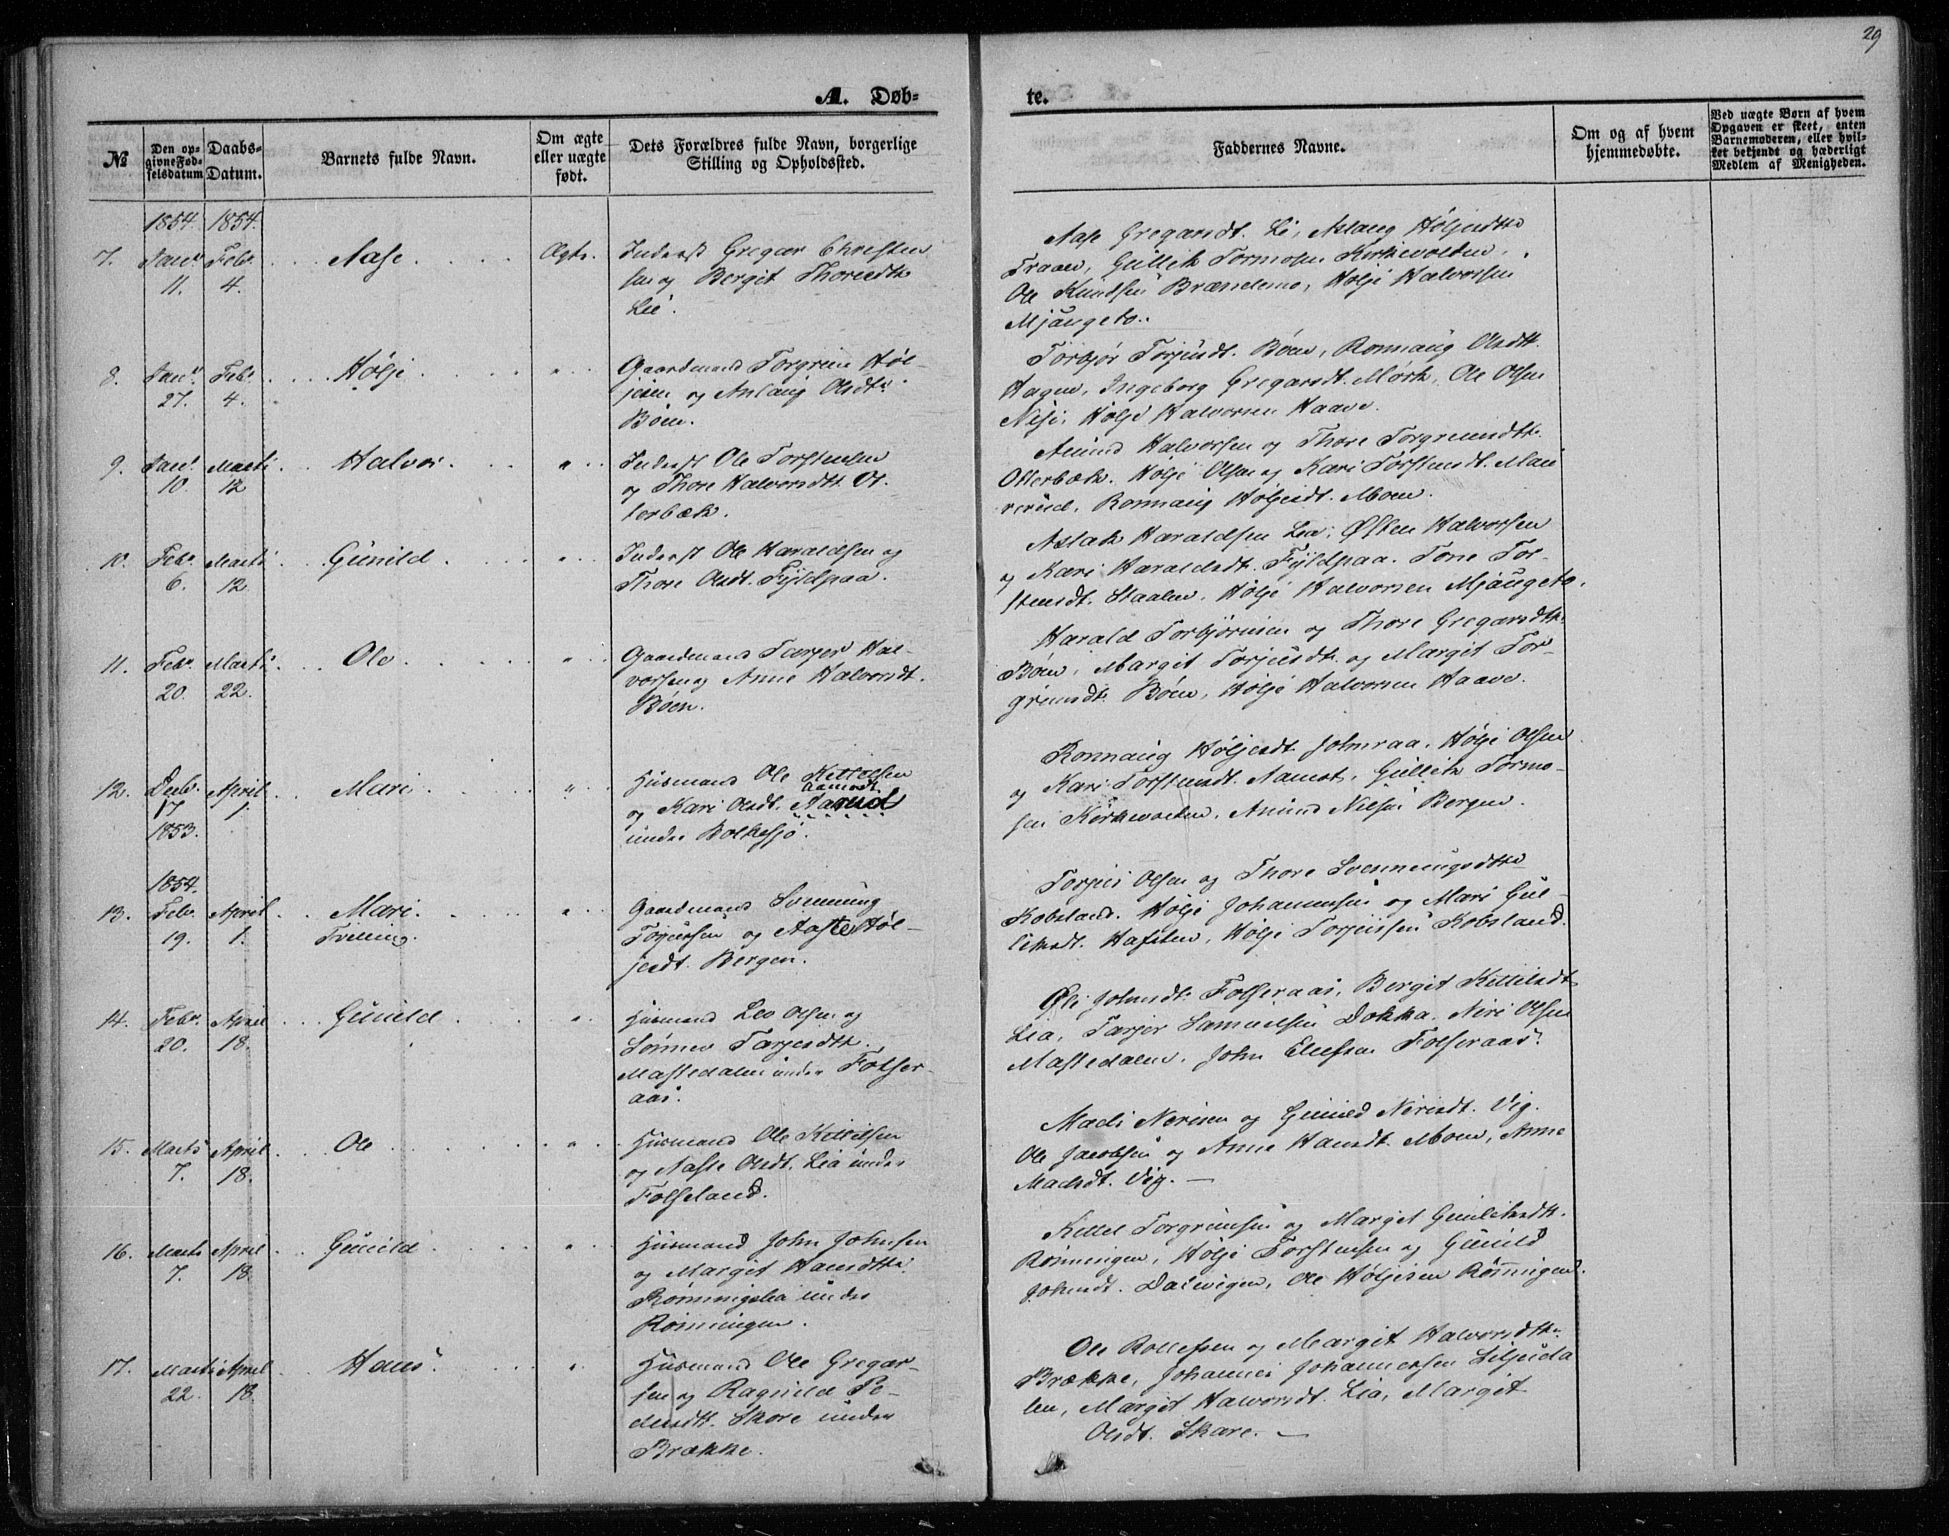 29
A. Døb=
te.
№
Den op-
givne Fød-
selsdatum
Daabs-
Datum.
Barnets fulde Navn.
Om ægte
eller uægte
født.
Dets Forældres fulde Navn, borgerlige
Stilling og Opholdssted.
Faddernes Navne.
Om og af hvem
hjemmedøbte.
Ved uægte Børn af hvem
Opgaven er skeet, enten
Barnemoderen, eller hvil-
ket bekjendt og hæderligt
Medlem af Menigheden.
1854. 1854.
7. Janr 11. Febr 4. Aase Ægte.
Inderst Gregar Christen
sen og Bergit Thorsdtr
Lie.
Aase Gregarsdt. Li, Aslaug Høljesdtr
Traaen, Gullik Tormosen Kirkevolden,
Ole Knudsen Brændemo, Høljé Halvorsen
Mjaugeto.
8. Janr 27. Febr 4. Hølje "
Gaardmand Torgrim Høl-
jesen og Aslaug Olsdtr
Bøen.
Torbjør Torjusdt. Bøen, Ronnaug Olsdtt.
Hagen, Ingeborg Gregarsdt. Mørk, Ole Olsen
Nisi, Høljé Halvorsen Haave.
9. Janr 10. Marts 12 Halvor. "
Inderst Ole Torstensen
og Thore Halvorsdtr. Ot-
terbæk.
Amund Halvorsen og Thore Torgrimsdtr.
Otterbæk. Høljé Olsen og Kari Torstensdt. Mari
rerud, Ronnaug Høljesdt. Moen.
10. Febr 6. Marts 12 Gunild. "
Inderst Ole Haraldsen og
Thore Olsdt. Fyldpaa.
Aslak Haraldsen Lia, Østen Halvorsen
og Kari Haraldsdt. Fyldpaa. Tone Tor-
stensdt. Staalen, Høljé Halvorsen Mjaugeto.
11. Febr 20. Marts 22. Ole "
Gaardmand Tarjer Hal-
vorsen og Anne Halvorsdt.
Bøen.
Harald Torbjørnsen og Thore Gregarsdtr.
Bøen, Margit Torjusdtr. og Margit Tor-
grimsdt. Bøen, Høljé Halvorsen Haave.
12. Decbr 17 1853. April 1. Mari "
Husmand Ole Kittelsen
Aamodt
og Kari Olsdt. Aarud
under Bolkesjø.
Ronnaug Høljesdt. Johnsraa, Høljé Olsen
og Kari Torstensdt. Aamot, Gullik Tormo-
sen Kirkevolden, Amund Nielsen Bergen.
1854.
13. Febr. 19. April 1. Mari. "
Tvilling.
Gaardmand Svenning
Torjussen og Aaste Høl-
jesdt. Bergen.
Torjus Olsen og Thore Svenningsdtr
Kobsland. Høljé Johannesen og Mari Gul-
liksdt. Hafsten, Høljé Torjussen Kobsland.
14. Febr 20. April 18. Gunild "
Husmand Leo Olsen og
Sønnev Tarjesdtr.
Mastedalen under Folser-
aas.
Eli Johnsdt. Folseraas, Bergit Kittilsdt
Lia, Tarjer Samuelsen Dokka. Neri Olsen
Mastedalen. John Ellefsen Folseraas.
15. Marts 7. April 18. Ole "
Husmand Ole Kittilsen
og Aaste Olsdt. Lia under
Folseland.
Mads Nerisen og Gunild Nerisdt. Vig.
Ole Jacobsen og Anne Hansdt. Moen, Anne
Madsdt. Vig. —
16. Marts 7. April 18 Gunild "
Husmand John Johnsen
og Margit Hansdtr.
Rønningslia under
Rønningen.
Kittel Torgrimsen og Margit Gunliksdt.
Rønningen, Høljé Torstensen og Gunild
Johnsdt. Dalvigen, Ole Høljesen Rønningen.
17. Marts 22. April 18. Hans "
Husmand Ole Gregar-
sen og Ragnild Pe-
dersdt. Skare under
Brække.
Ole Rollefsen og Margit Halvorsdtr.
Brække, Johannes Johannessen Liljeda
len, Margit Halvorsdt. Lia, Margit
Olsdt. Skare. —